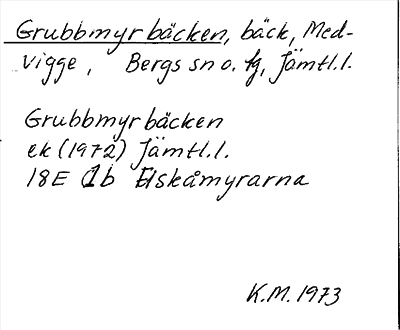 Grubbmyrbäcken, bäck, Med-
vigge, Bergs sn o. tg, Jämtl.l.
Grubbmyrbäcken
ek (1972) Jämtl.l.
18E 1b Elskåmyrarna
K.M. 1973